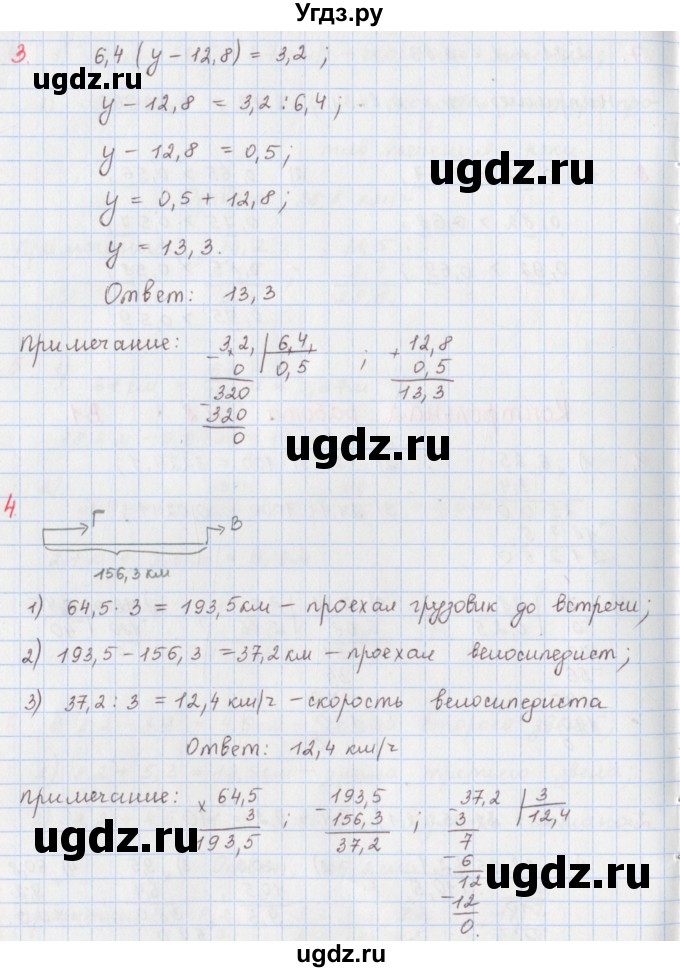 Угдз.ру
3. 6,4 (y − 12,8) = 3,2 ;
ugdz.ru
y − 12,8 = 3,2 : 6,4 ;
y − 12,8 = 0,5 ;
ugdz.ru
y = 0,5 + 12,8 ;
y = 13,3.
Ответ: 13,3
Примечание: 3,2, | 6,4, ; + 12,8
− 0 | 0,5 0,5
320 13,3
− 320
0
ugdz.ru
4.
Г В
156,3 км
1) 64,5 · 3 = 193,5 км – проехал грузовик до встречи;
2) 193,5 − 156,3 = 37,2 км – проехал велосипедист;
ugdz.ru
3) 37,2 : 3 = 12,4 км/ч – скорость велосипедиста
Ответ: 12,4 км/ч
Примечание: × 64,5 ; − 193,5 ; − 37,2 | 3
3 156,3 3 | 12,4
193,5 37,2 7
ugdz.ru
− 6
12
− 12
0.
ugdz.ru
ugdz.ru